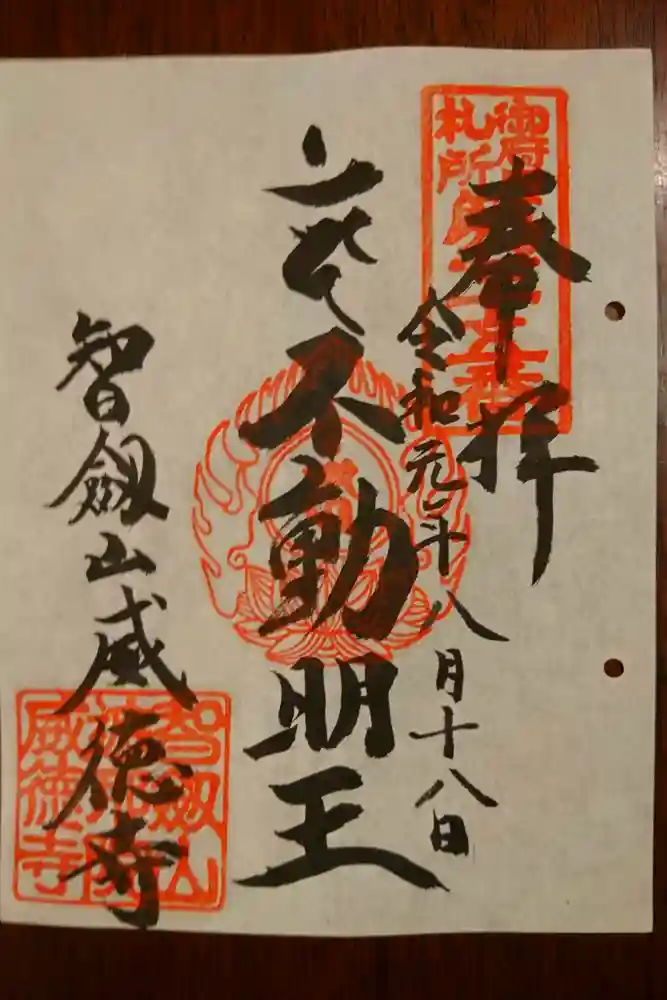 奉拝
令和元年八月十八日
不動明王
智劔山威徳寺
札所
智劔山
威徳寺